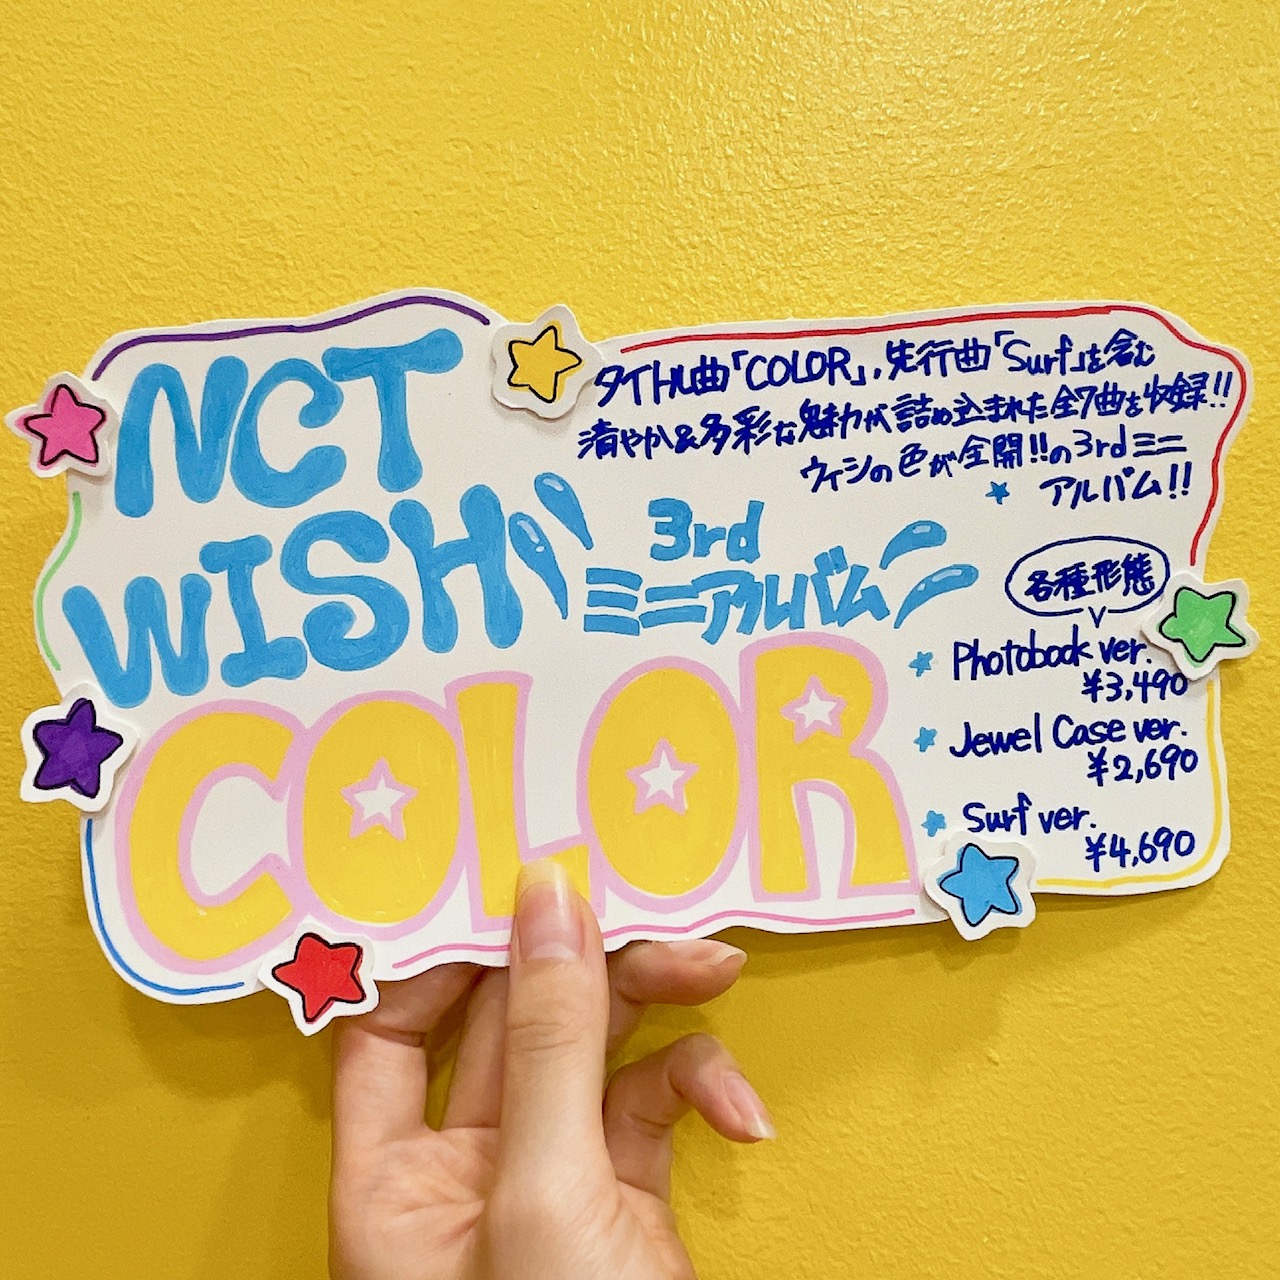 NCT
WISH
3rd
ミニアルバム
COLOR
タイトル曲「COLOR」,先行曲「Surf」を含む
清やか&多彩な魅力が詰め込まれた全7曲を収録!!
ウィシの色が全開!!の3rdミニ
アルバム!!
各種形態
Photobook ver.
¥3,490
Jewel Case ver.
¥2,690
Surf ver.
¥4,690